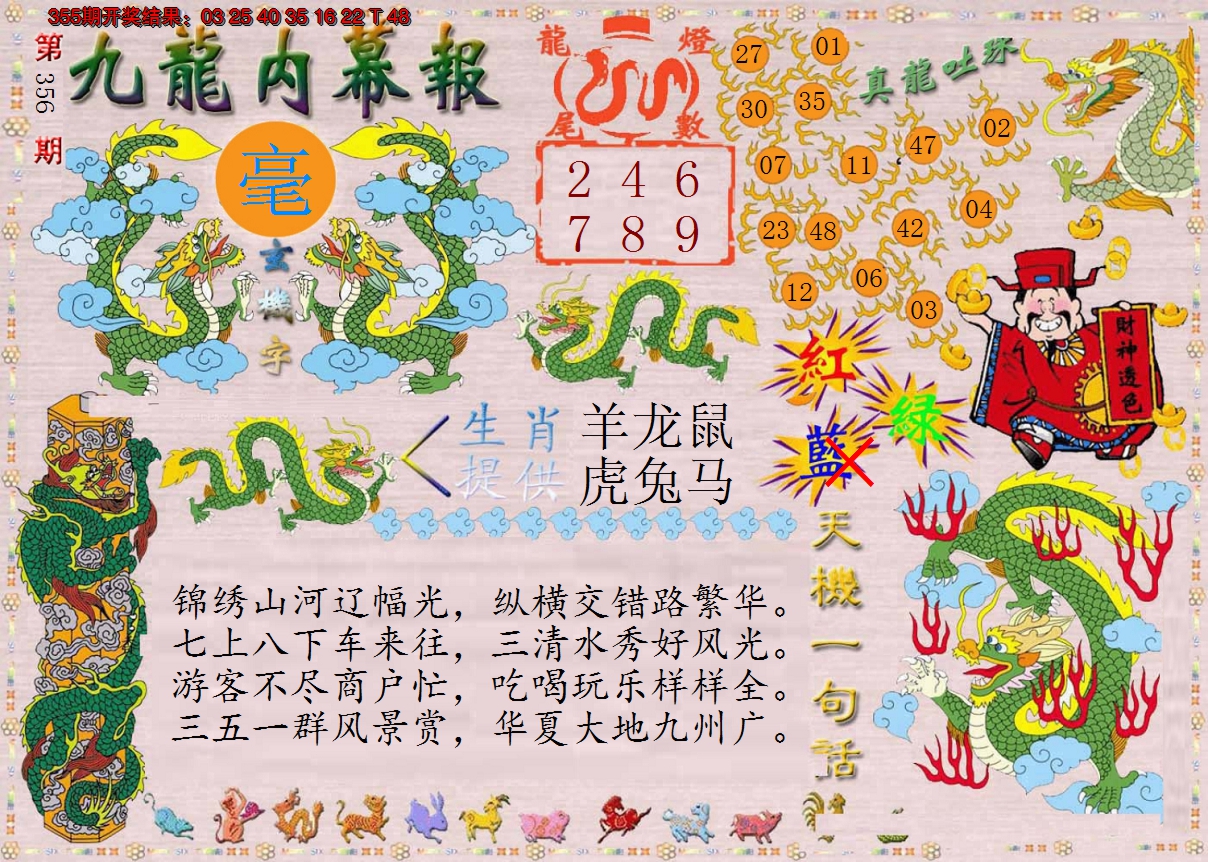 355期开奖结果：03 25 40 35 16 22 T 48
第356期
九龍内幕報
毫
玄機字
龍燈
尾數
2 4 6
7 8 9
真龍吐珠
27 01
30 35
47 02
07 11
04
23 48 42
06
12 03
財神透色
紅
緑
藍
生肖 羊龙鼠
提供 虎兔马
天機一句话
锦绣山河辽幅光，纵横交错路繁华。
七上八下车来往，三清水秀好风光。
游客不尽商户忙，吃喝玩乐样样全。
三五一群风景赏，华夏大地九州广。